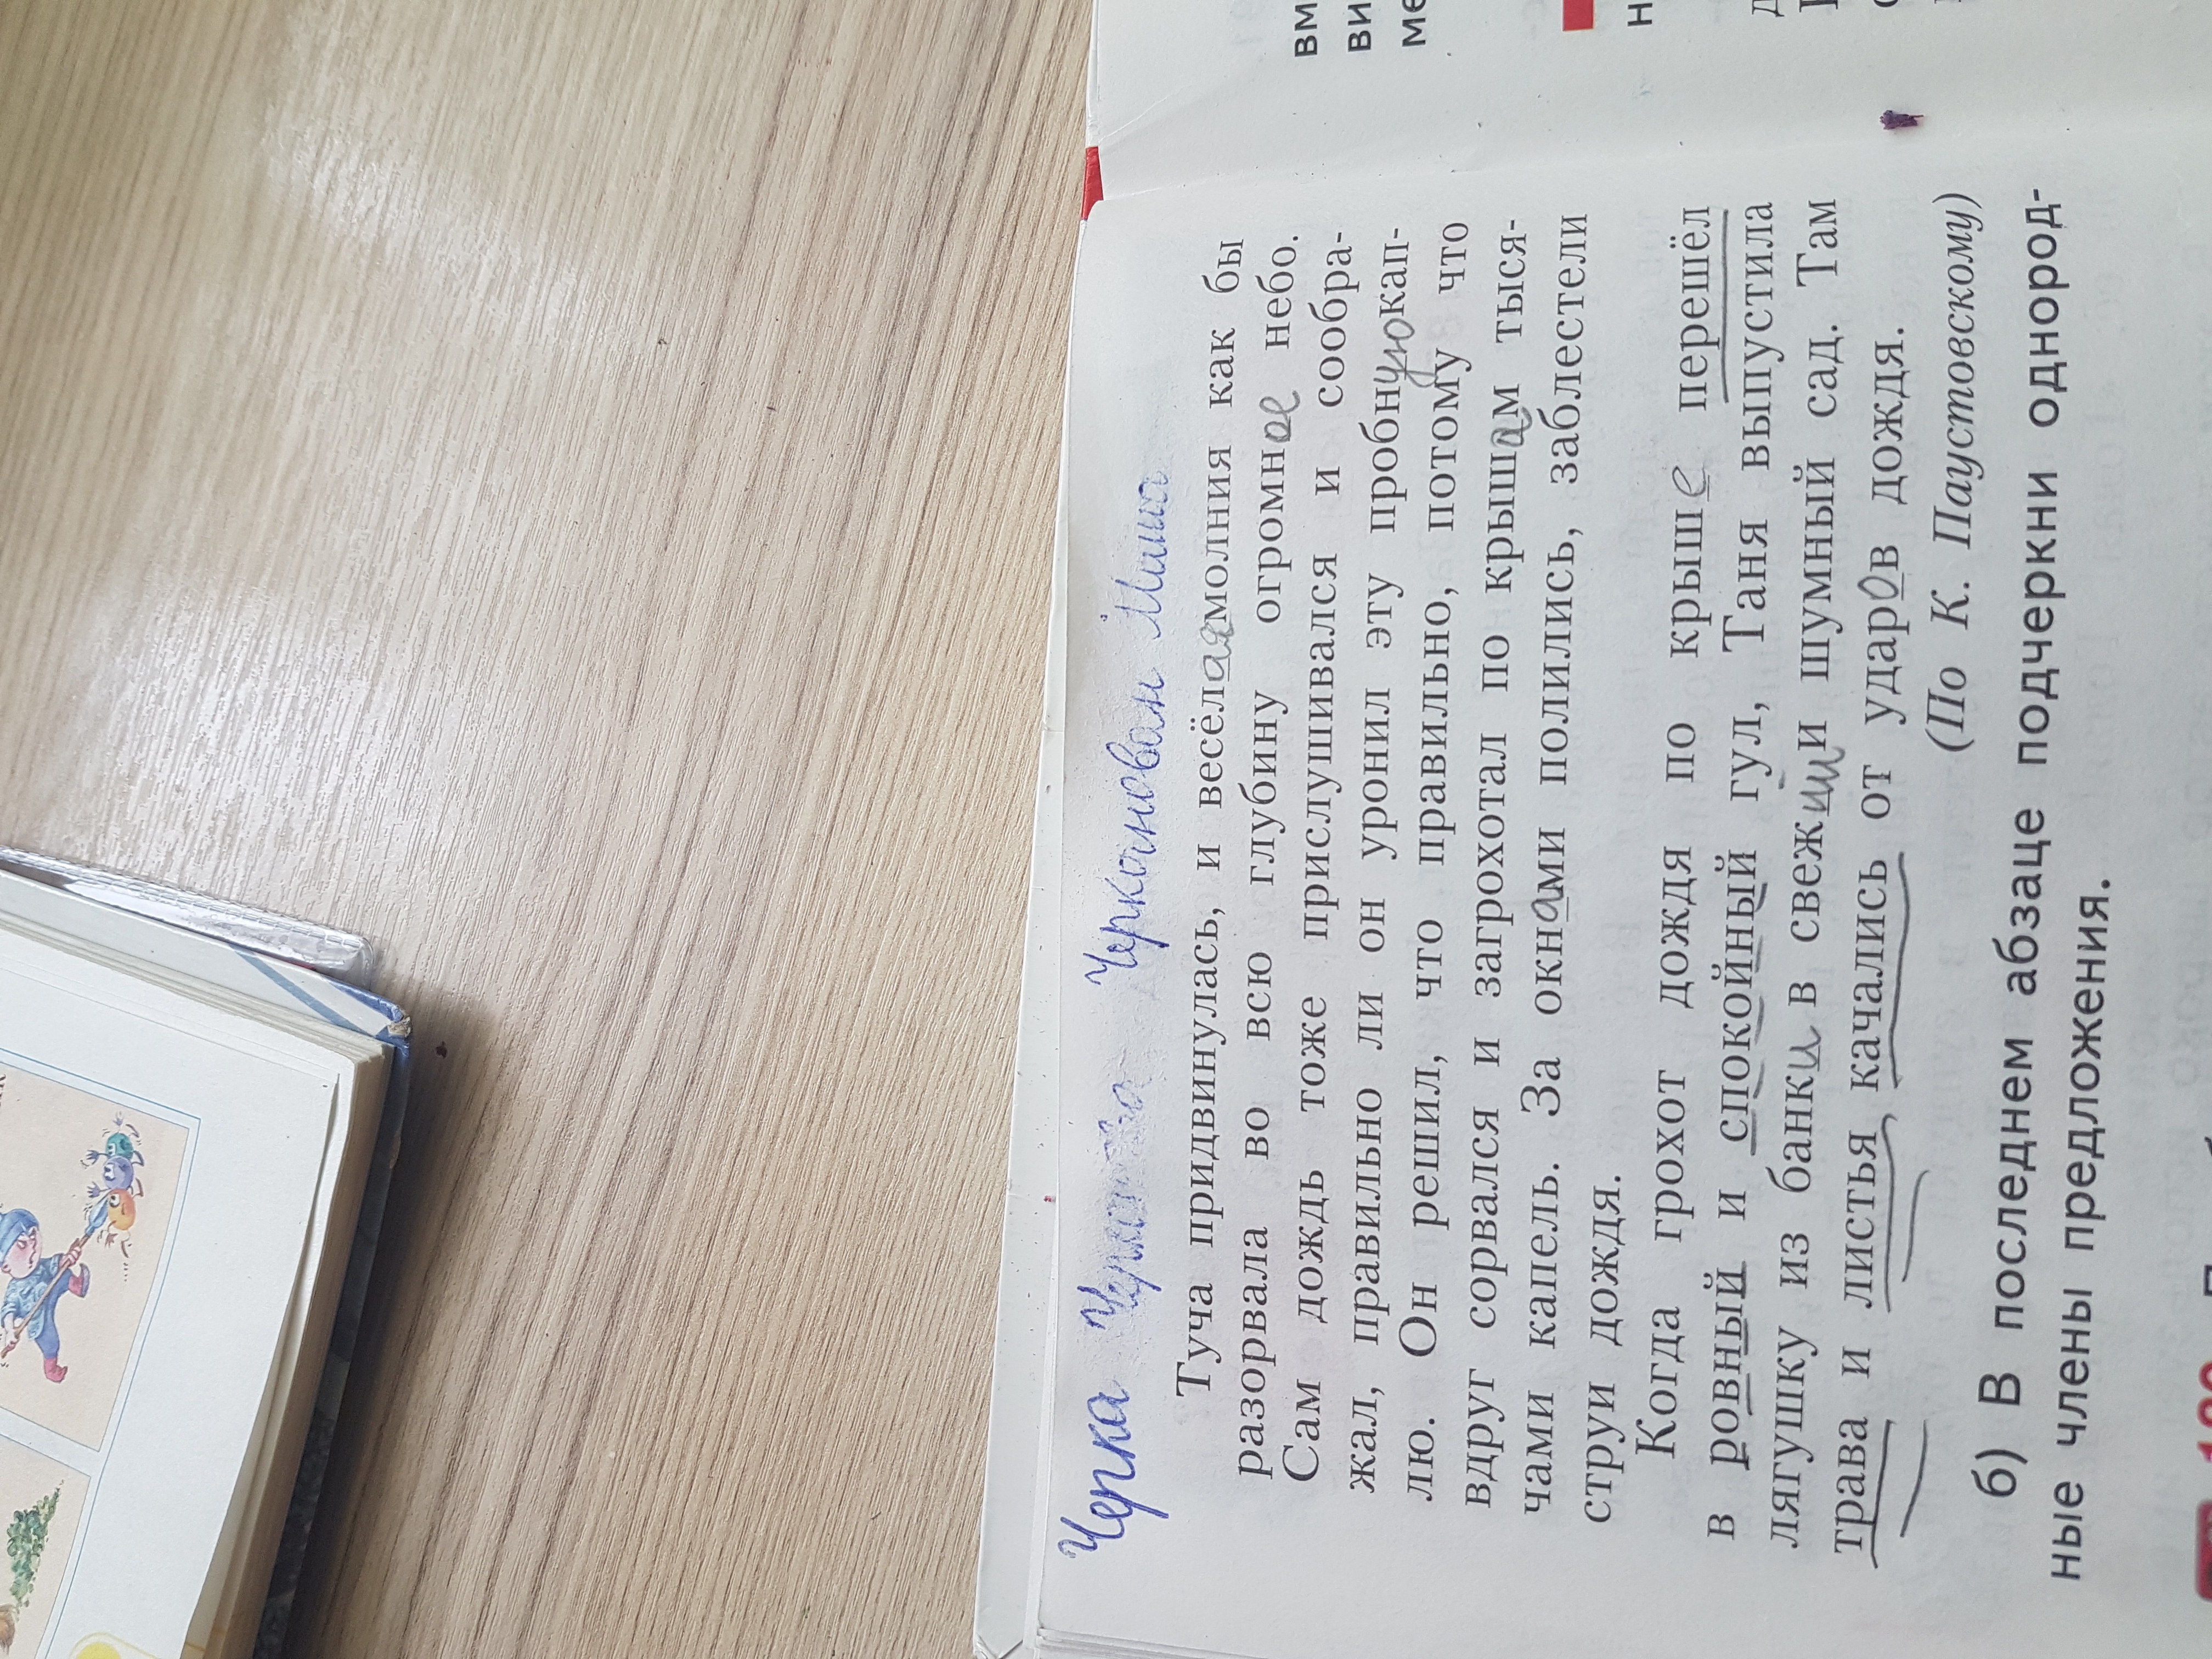 Черка Черкновам Миша
Туча придвинулась, и весёлая молния как бы
разорвала во всю глубину огромное небо.
Сам дождь тоже прислушивался и сообра-
жал, правильно ли он уронил эту пробную кап-
лю. Он решил, что правильно, потому что
вдруг сорвался и загрохотал по крышам тыся-
чами капель. За окнами полились, заблестели
струи дождя.
Когда грохот дождя по крыше перешёл
в ровный и спокойный гул, Таня выпустила
лягушку из банки в свежий и шумный сад. Там
трава и листья, качались от ударов дождя.
(По К. Паустовскому)
б) В последнем абзаце подчеркни однород-
ные члены предложения.
вм
ви
ме
н